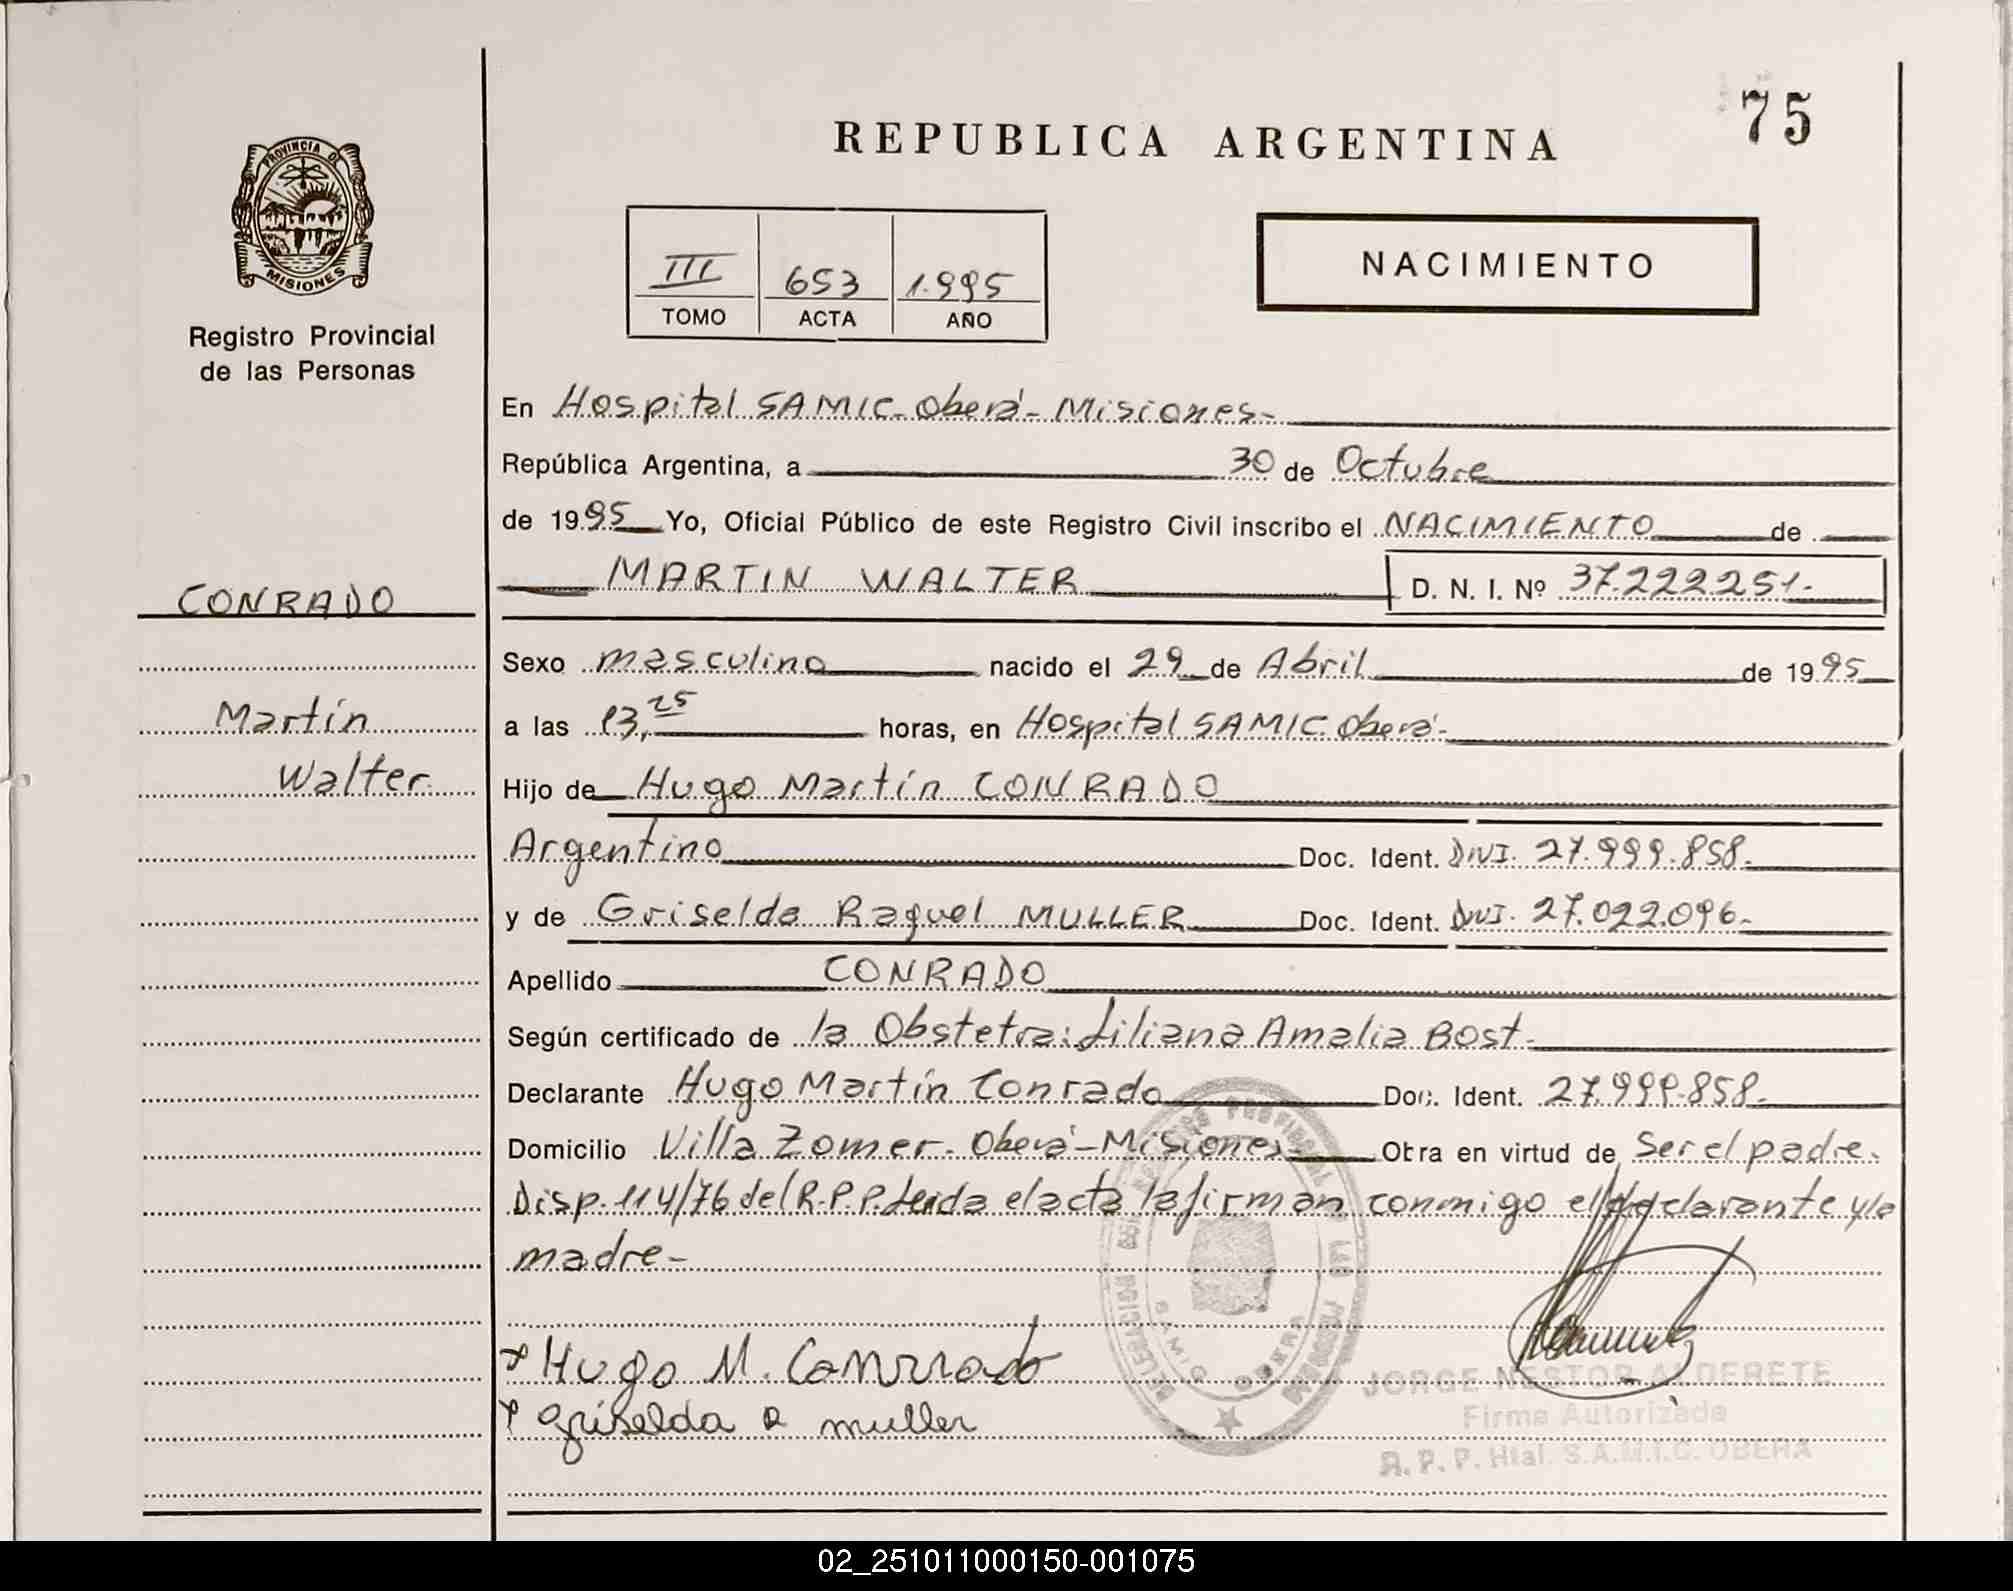 75
REPUBLICA ARGENTINA
PROVINCIA DE
MISIONES
Registro Provincial
de las Personas
III 653 1.995
TOMO ACTA AÑO
NACIMIENTO
En Hospital SAMIC-Oberá-Misiones-
República Argentina, a 30 de Octubre
de 1995 Yo, Oficial Público de este Registro Civil inscribo el NACIMIENTO de
CONRADO
MARTIN WALTER D. N. I. Nº 37.222.251.-
Sexo masculino nacido el 29 de Abril de 1995
Martín
a las 13,25 horas, en Hospital SAMIC Oberá-
Walter
Hijo de Hugo Martín CONRADO
Argentino Doc. Ident. DNI. 27.999.858-
y de Griselda Raquel MULLER Doc. Ident. DNI. 27.022.096-
Apellido CONRADO
Según certificado de la Obstetra: Liliana Amalia BOST-
Declarante Hugo Martín Conrado Doc. Ident. 27.999.858-
Domicilio Villa Zomer- Oberá-Misiones Obra en virtud de Ser el padre.
Disp. 114/76 del R.P.P. Leída el acta la firman conmigo el declarante y la
madre-
+ Hugo M. Conrrado
+ Griselda R muller
JORGE NESTOR ALDERETE
Firma Autorizada
R. P. P. Htal. S.A.M.I.C. OBERA
02_251011000150-001075